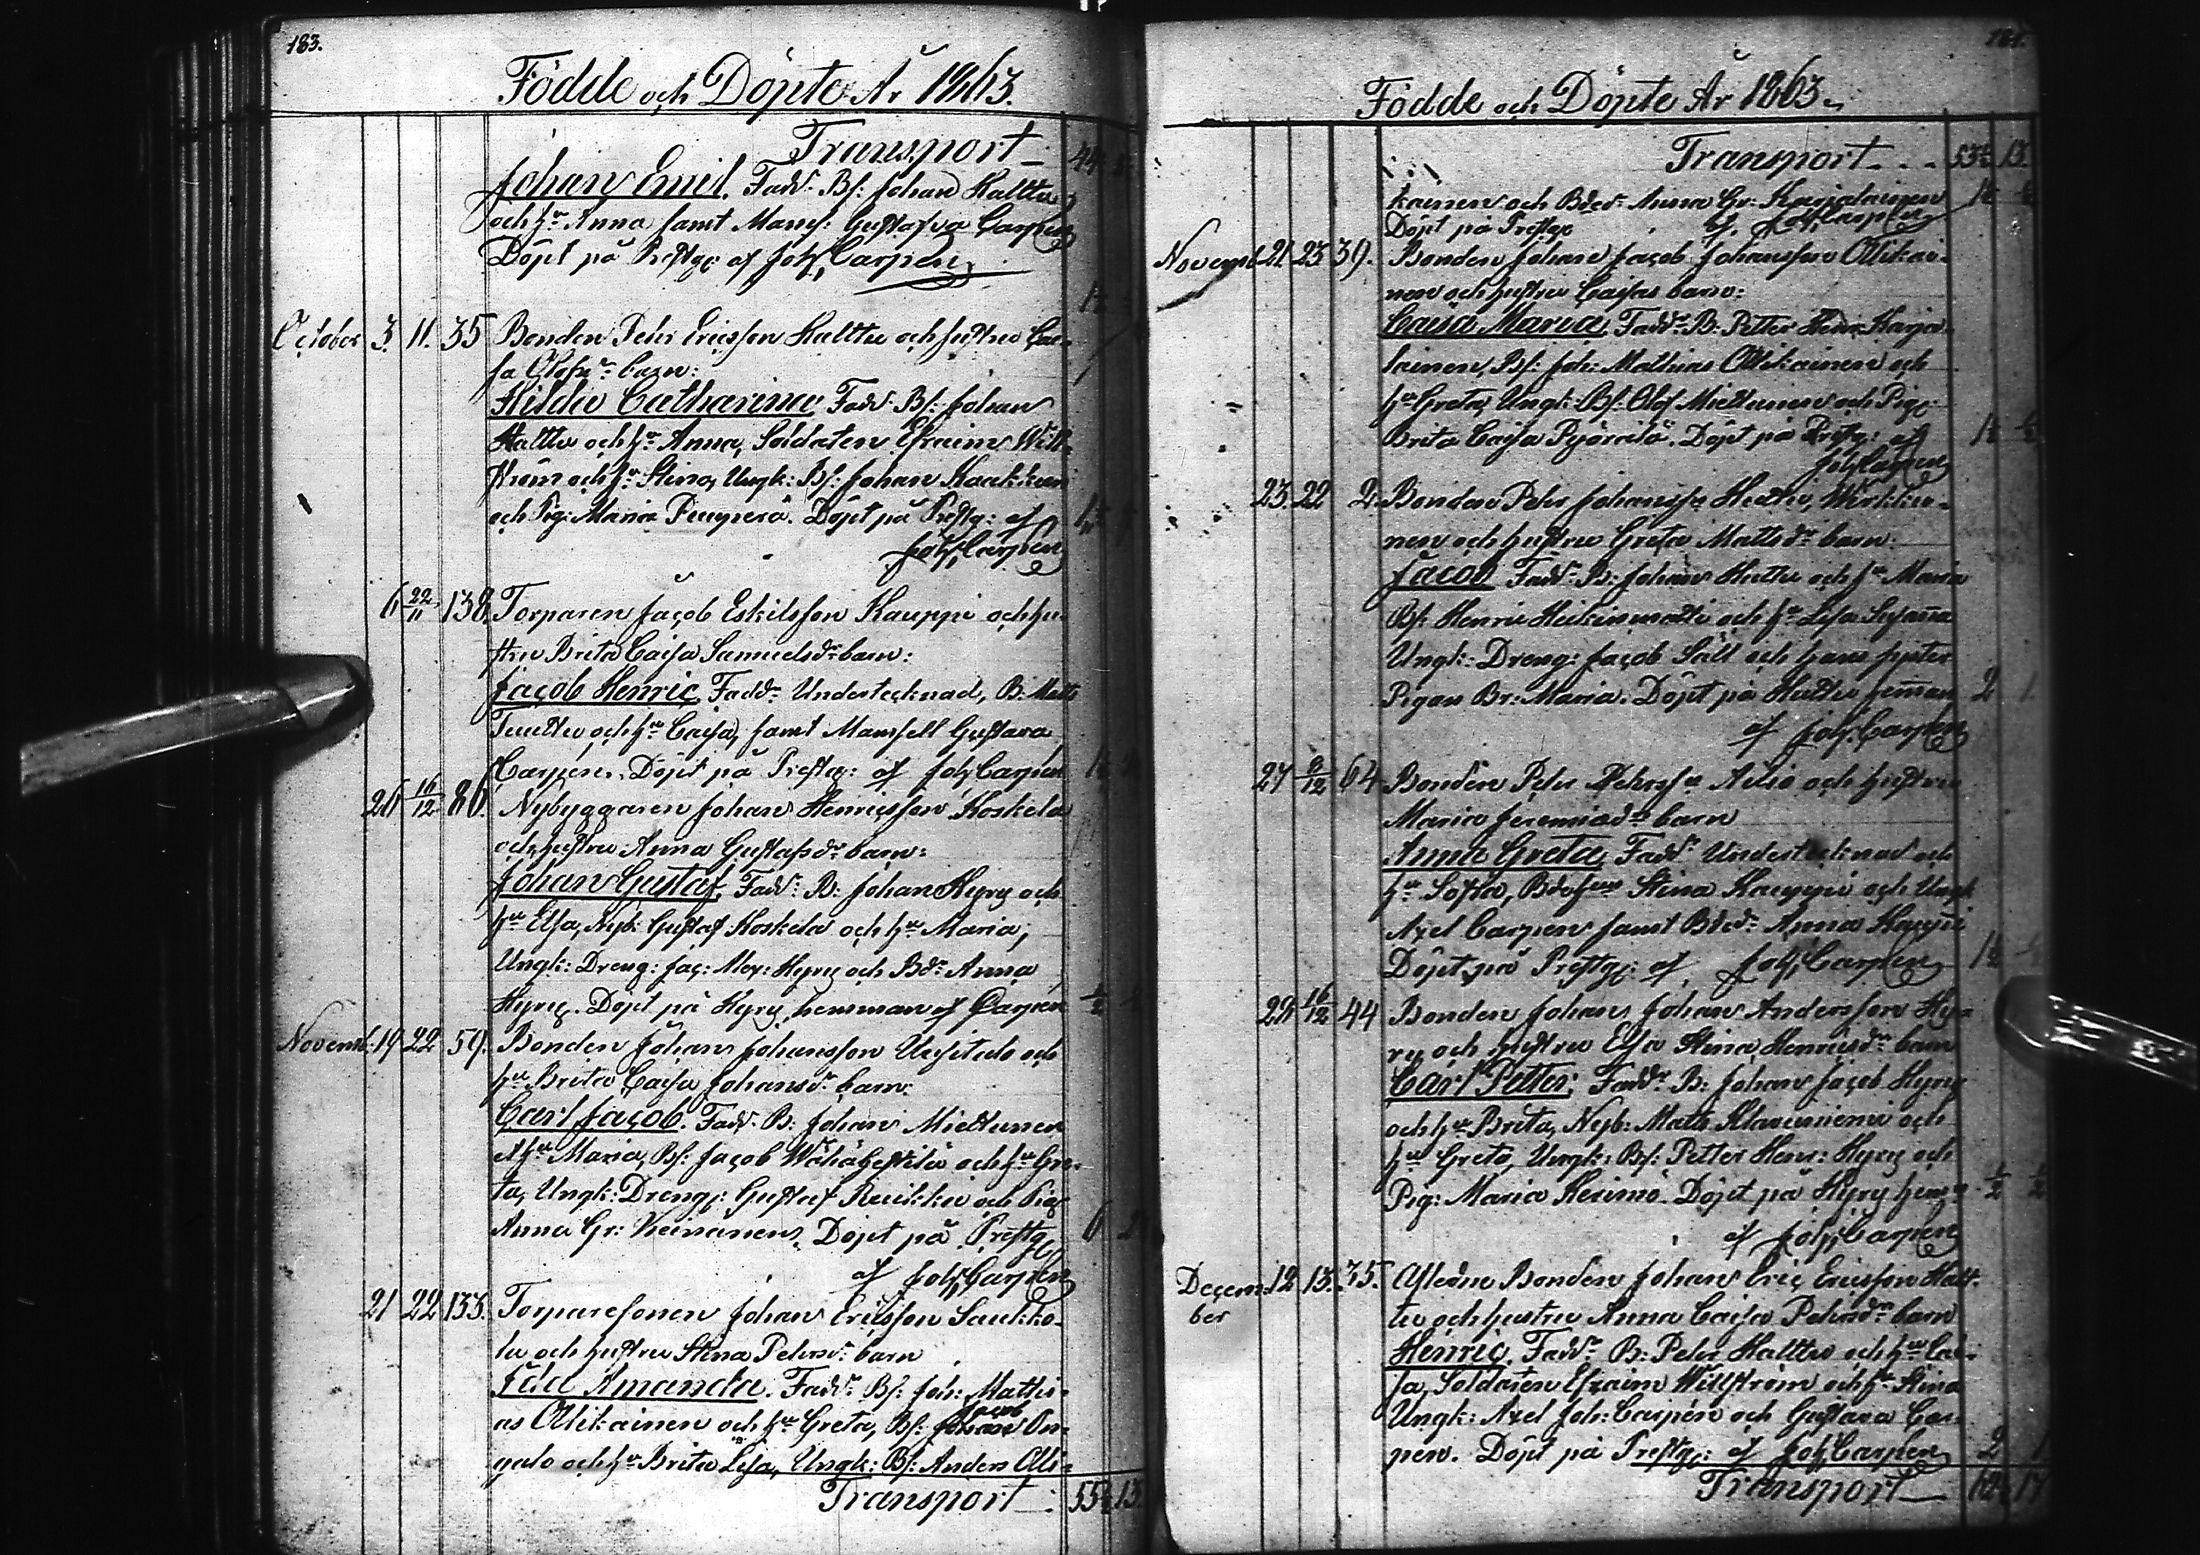 183.
Födde och Döpte År 1863.
Transport 44
Johan Emil. Fadd: Bf: Johan Halttu
och hu Anna samt Mams: Gustafva Carpen
Döpt på Prestg: af Joh. Carpen
1½
October 3. 11. 35 Bonden Pehr Ericsson Halttu och hustru Cai-
sa Olofsdr barn:
Hilda Catharina Fadd: Bf: Johan
Halttu och hu Anna, Soldaten Efraim Will-
ström och hu Stina, Ungk: Bf: Johan
och Pig: Maria. Döpt på Prestg: af 1½
Joh. Carpen
6 22/11 138. Torparen Jacob Eskilsson Kauppi och hu-
stru Brita Caisa Samuelsdr barn:
Jacob Henric, Fadd: Undertecknad, B: Matts
och hu Caisa, samt Mamsell Gustava
Carpen. Döpt på Prestg: af Joh. Carpen 1½
26 16/12 86. Nybyggaren Johan Henricsson Koskela
och hustru Anna Gustafsdr barn:
Johan Gustaf, Fadd: B: Johan Hyry och
hu Elsa, Nyb: Gustaf Koskela och hu Maria,
Ungk: Dreng: Jac: Alex: Hyry och Bdr Anna
Hyry. Döpt på Hyry hemman af Carpen ½
Novemb. 19 22 59. Bonden Johan Johansson och
hu Brita Caisa Johansdr barn:
Carl Jacob. Fadd: B: Johan Miettunen
och hu Maria, Bf: Jacob och hu Gre-
ta, Ungk: Dreng: Gustaf och Pig:
Anna Gr: Veinänen. Döpt på Prestg 6 2
af Joh. Carpen
21 22 133. Torparesonen Johan Ericsson Saukko-
la och hustru Stina Pehrsdr barn
Ida Amanda. Fadd: Bf: Joh: Matti-
as Ollikainen och hu Greta, Bf: Jacob
och hu Brita Lisa, Ungk: Bf: Anders Olli-
Transport 55½ 13
Födde och Döpte År 1863.
Transport 53½ 13.
kainen och Bdr Anna Gr: Karjalainen 1½
Döpt på Prestg: af Joh. Carpen
Novemb. 21. 23 39. Bonden Johan Jacob Johansson Ollikai-
nen och hustru Caisas barn:
Caisa Maria, Fadd: B: Petter Henr: Karja-
lainen, Bf: Joh: Mathias Ollikainen och
hu Greta, Ungk: Bf: Olof Miettunen och Pig:
Brita Caisa Pyörälä. Döpt på Prestg: af 1½ ½
Joh. Carpen
23. 22 2. Bonden Pehr Johansson Halttu,
nen och hustru Greta Mattsdr barn:
Jacob Fadd: B: Johan Halttu och hu Maria
Bf: Henric och hu Lisa Susanna
Ungk: Dreng: Jacob Säll och hans syster
Pigan Br: Maria. Döpt på Halttu hemman 2 1.
af Joh. Carpen
27 8/12 64 Bonden Pehr Pehrsson Asio och hustru
Maria Jeremiasdr barn
Anna Greta Fadd: Undertecknad och
hu Sofia, Stina Kauppi och Ungk
Axel Carpen samt Bdr: Anna Kauppi
Döpt på Prestg: af Joh. Carpen 1½ ½
29 16/12 44 Bonden Johan Johan Andersson Hy-
ry och hustru Elsa Stina Henricsdr barn
Carl Petter, Fadd: B: Johan Jacob Hyry
och hu Brita, Nyb: Matts och
hu Greta, Ungk: Bf: Petter Henr: Hyry och
Pig: Maria Herimo. Döpt på Hyry hemn ½ ½
af Joh. Carpen
Decem- 12 13. 35. Aflidne Bonden Johan Eric Ericsson Halt-
ber tu och hustru Anna Caisa Pehrsdr barn
Henric. Fadd: B: Pehr Halttu och hu Cai-
sa, Soldaten Efraim Willström och hu Stina
Ungk: Axel Joh: Carpén och Gustava Car-
pen. Döpt på Prestg: af Joh. Carpen 2 1
Transport 17